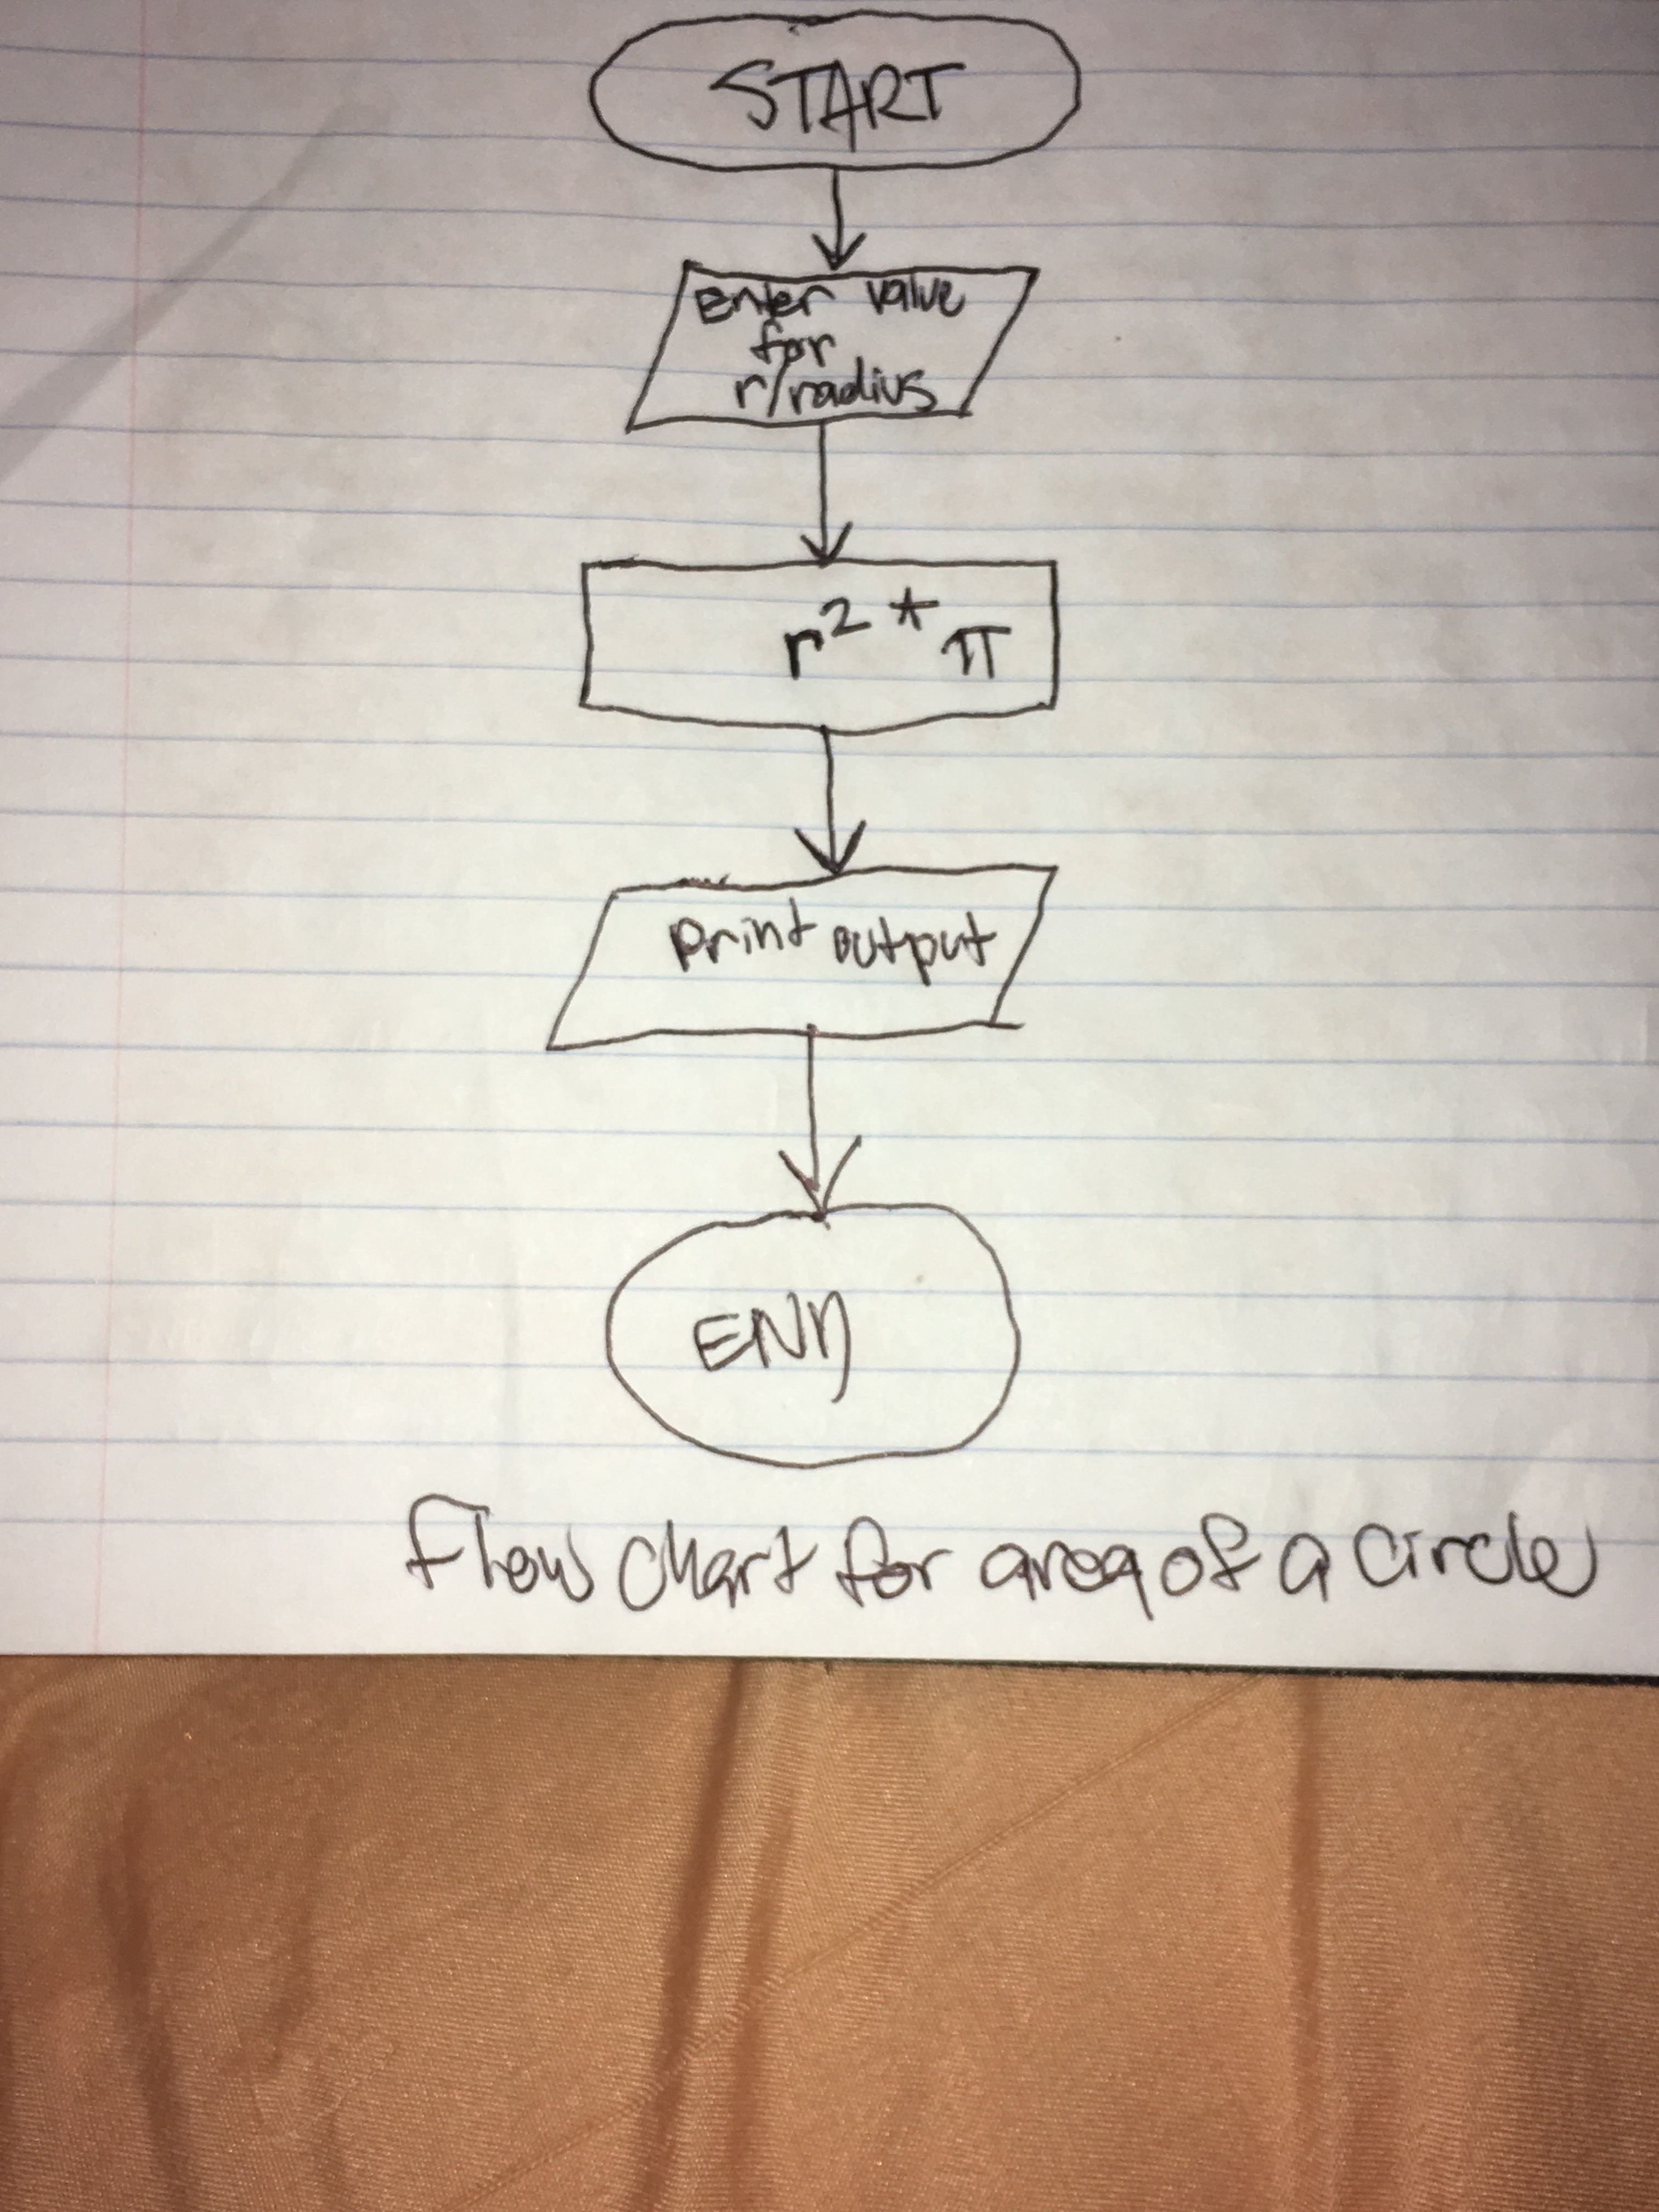 START
Enter value
for
r/radius
r² * π
Print output
END
Flow chart for area of a circle